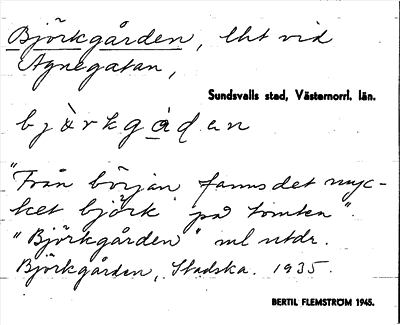 Björkgården, lht vid
Agnegatan,
Sundsvalls stad, Västernorrl. län.
bjàrkgàḍen
"Från början fanns det myc-
ket björk på tomten".
"Björkgården" ml utdr.
Björkgården, Stadska. 1935.
BERTIL FLEMSTRÖM 1945.